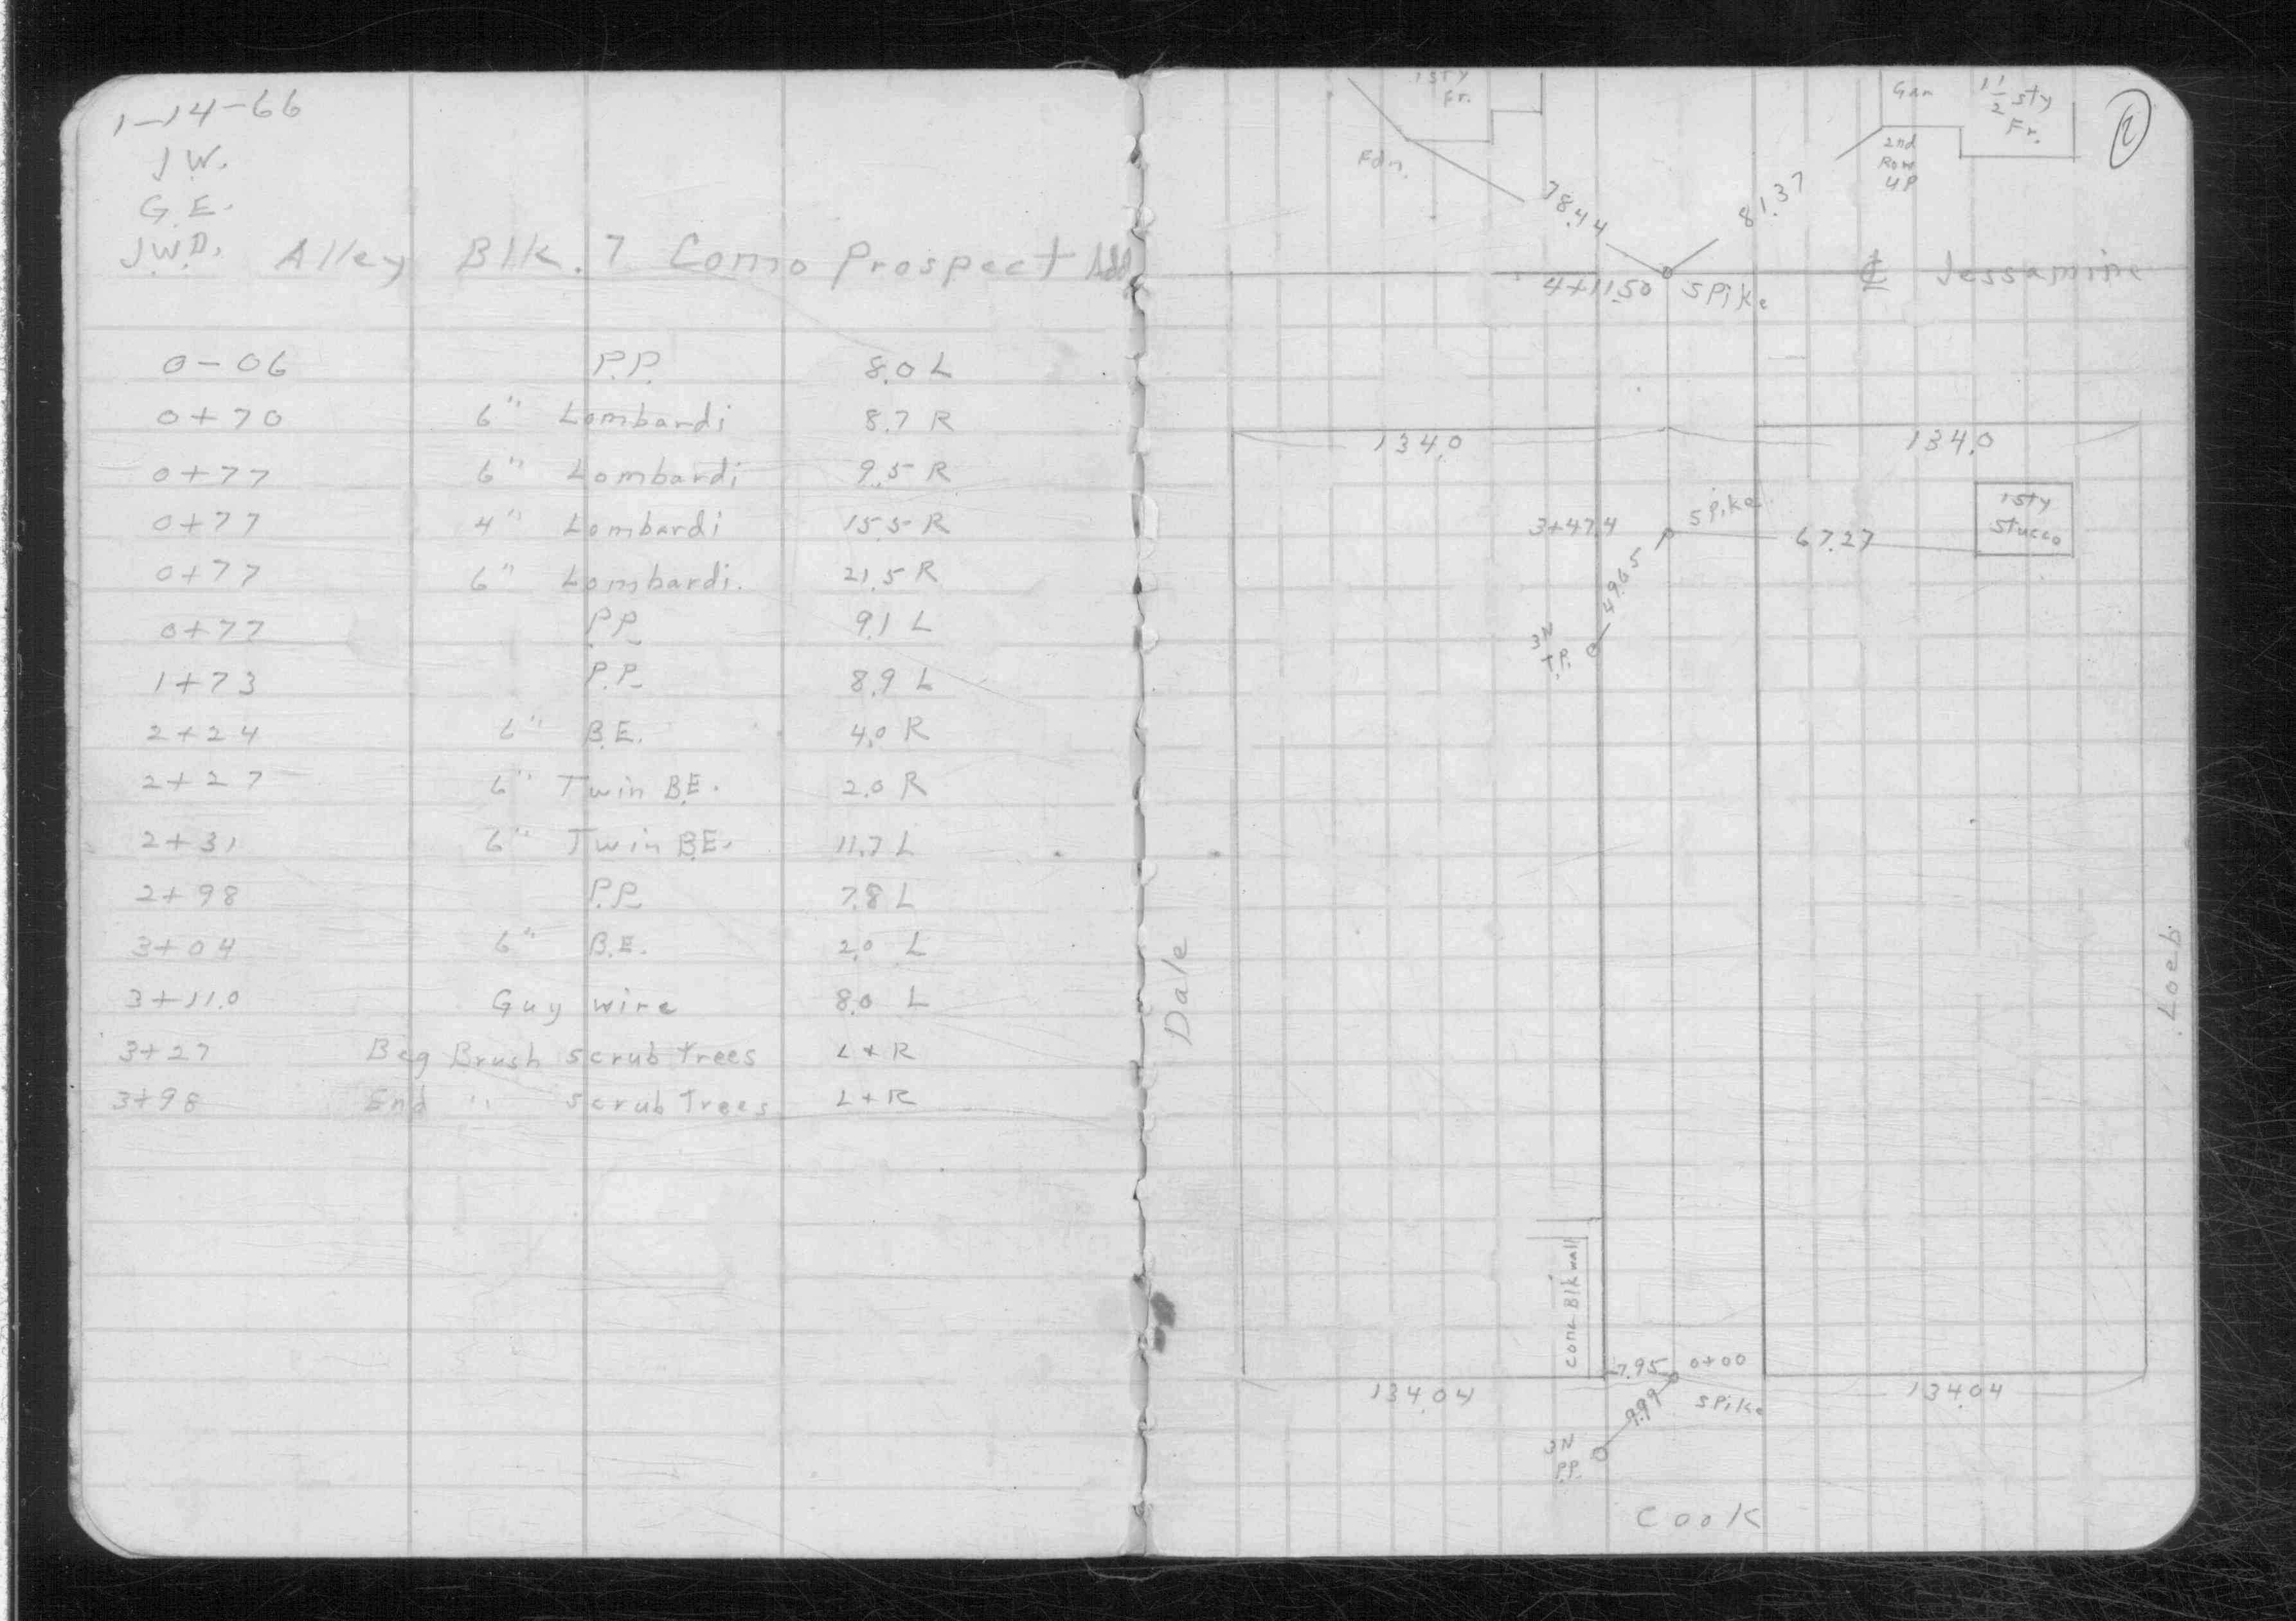 1-14-66
J.W.
G.E.
J.W.D. Alley Blk. 7 Como Prospect Add
0-06 P.P. 8.0 L
0+70 6" Lombardi 8.7 R
0+77 6" Lombardi 9.5 R
0+77 4" Lombardi 15.5 R
0+77 6" Lombardi. 21.5 R
0+77 P.P. 9.1 L
1+73 P.P. 8.9 L
2+24 6" B.E. 4.0 R
2+27 6" Twin B.E. 2.0 R
2+31 6" Twin B.E. 11.7 L
2+98 P.P. 7.8 L
3+04 6" B.E. 2.0 L
3+11.0 Guy wire 8.0 L
3+27 Beg Brush scrub trees L+R
3+98 End " scrub Trees L+R
2
1 sty
Fr.
Gar
1 1/2 sty
Fr.
Fdn.
2nd
Row
UP
78.44
81.37
4+11.50 Spike
℄ Jessamine
134.0
134.0
1 sty
Stucco
3+47.4
Spike
67.27
49.65
3N
T.P.
Dale
Loeb
Conc Blk wall
7.95
0+00
134.04
9.99
Spike
134.04
3N
P.P.
Cook